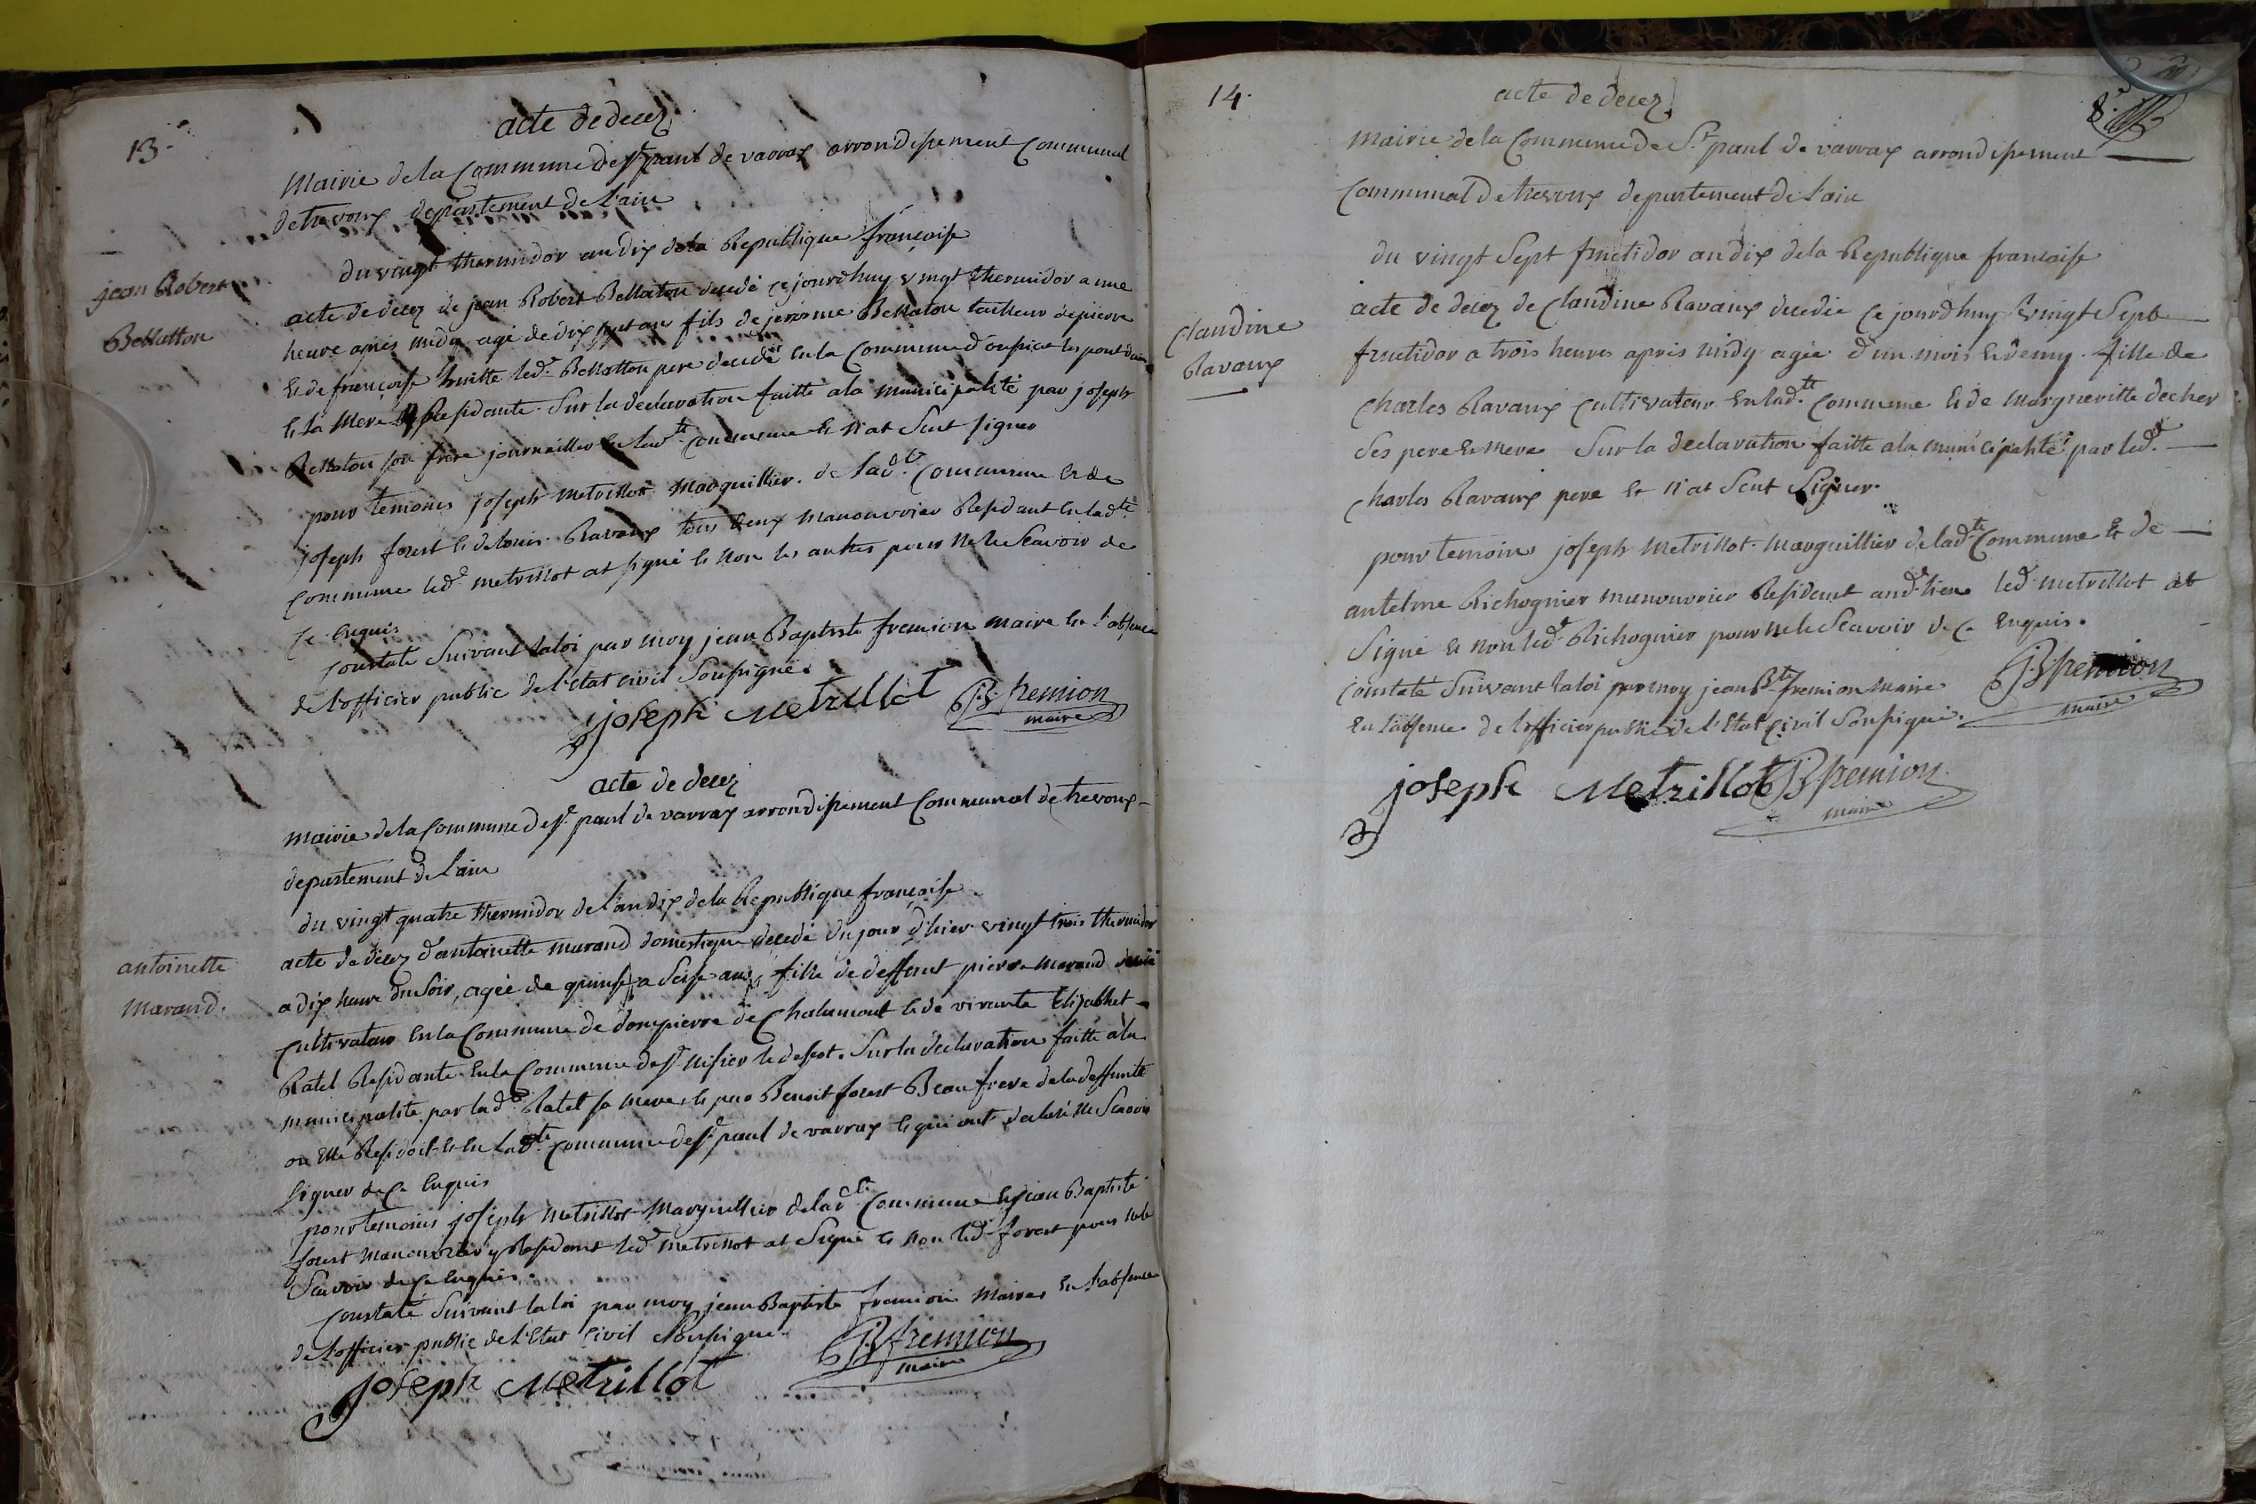 13.
acte de decez
Mairie de la Commune de St. paul de varrax arrondissement Communal
de trevoux departement de l'ain
du vingt thermidor an dix de la Republique francaise
jean Robert
Bellatton
acte de decez de jean Robert Bellaton decedé ce jourd'huy vingt thermidor a une
heure apres midy agé de dix sept ans fils de jerome Bellaton tailleur de pierre
et de francoise led. Bellatton pere decedé en la Commune
et la Mere Residante. Sur la declaration faitte a la municipalité par joseph
Bellaton son frere journaillier en lad.te commune et n'at Seut signer
pour temoins joseph Metrillot Marguillier de lad.te Commune et de
joseph forest et de louis Ravaux tous deux Manouvrier Residant en lad.te
Commune led. Metrillot at signé et Non les autres pour Ne le Scavoir de
Ce Enquis
Constaté Suivant la loi par moy jean Baptiste fremion maire En l'absence
de l'officier public de l'etat civil Soussigné.
joseph Metrillot JB fremion
maire
acte de decez
Mairie de la Commune de St. paul de varrax arrondissement Communal de trevoux
departement de l'ain
du vingt quatre thermidor de l'an dix de la Republique francaise
antoinette
Marand.
acte de decez d'antoinette Marand domestique decedé du jour d'hier vingt trois thermidor
a dix heure du Soir, agée de quinse a Seise ans fille de deffunt pierre Marand
Cultivateur En la Commune de dompierre de Chalamont et de vivante Elizabhet
Ratel Residante En la Commune de St. Nisier le desert. Sur la declaration faitte a la
municipalité par lad.te Ratel sa mere et par Benoit forest Beau frere de la deffunte
ou Elle Residoit et En lad.te Commune de St. paul de varrax et qui ont declaré Ne Scavoir
signer de Ce Enquis
pour temoins joseph Metrillot Marguillier de lad.te Commune et jean Baptiste
forest Manouvrier y Residant led. Metrillot at Signé et Non led. forest pour Ne le
Scavoir de Ce Enquis.
Constaté Suivant la loi par moy jean Baptiste fremion Maire En l'absence
de l'officier public de l'Etat Civil Soussigné.
JB fremion
maire
joseph Metrillot
14.
acte de decez
8.e
Mairie de la Commune de St. paul de varrax arrondissement
Communal de trevoux departement de l'ain
du vingt Sept fructidor an dix de la Republique francaise
Claudine
Ravaux
acte de decez de Claudine Ravaux decedée Ce jourd'huy vingt Sept
fructidor a trois heures apres midy agée d'un mois et demy. fille de
Charles Ravaux Cultivateur En lad.te Commune et de Margueritte decher
Ses pere et mere Sur la declaration faitte a la municipalité par led.
Charles Ravaux pere et n'at Seut Signer.
pour temoins joseph Metrillot Marguillier de lad.te Commune et de
antelme Richognier manouvrier Residant aud. lieu led. Metrillot at
Signé et non led. Richognier pour ne le Scavoir de Ce Enquis.
Constaté Suivant la loi par moy jean B.te fremion Maire
En l'absence de l'officier public de l'Etat Civil Soussigné.
JB fremion
maire
joseph Metrillot JB fremion
maire